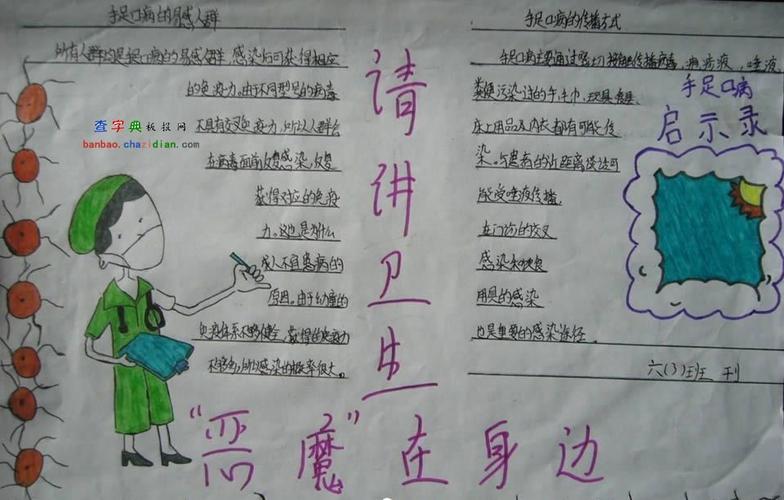 手足口病的易感人群
所有人群均是手足口病的易感人群 感染后可获得相应
的免疫力。由于不同型号的病毒
不具有交叉免疫力，所以人群会
在病毒面前反复感染，反复
获得对应的免疫
力。这也是为什么
成人不宜患病的
原因。由于幼童的
免疫体系不够健全，获得的免疫力
不够多，所以感染的概率很大。
请讲卫生
手足口病的传播方式
手足口病主要通过密切接触传播病毒，疱疹液，唾液
粪便污染过的手，毛巾，玩具 食具
床上用品及内衣都有可能传
染。与患病的近距离谈话可
能受唾液传播，
在门诊的交叉
感染和饮食
用具的感染
也是重要的感染途径。
六（3）班 刊
手足口病
启示录
"恶魔"在身边
查字典板报网
banbao.chazidian.com